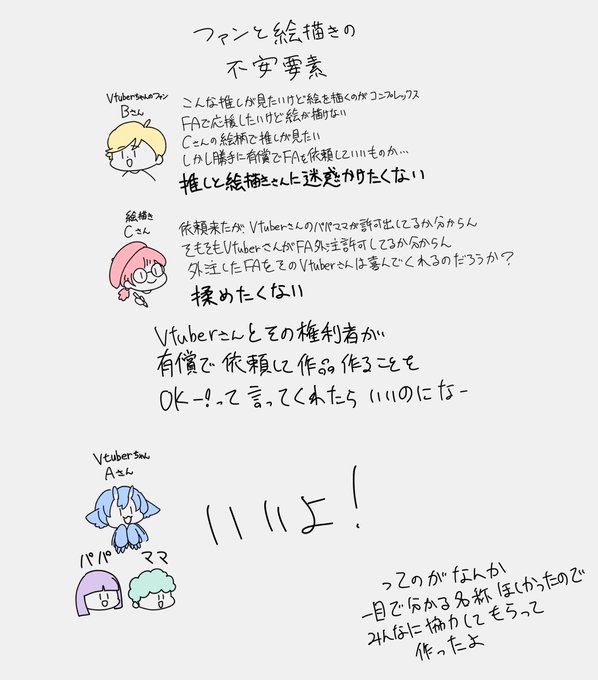 ファンと絵描きの
不安要素
Vtuberちゃんのファン
Bさん
こんな推しが見たいけど絵を描くのがコンプレックス
FAで応援したいけど絵が描けない
Cさんの絵柄で推しが見たい
しかし勝手に有償でFAを依頼していいものか…
推しと絵描きさんに迷惑かけたくない
絵描き
Cさん
依頼来たがVtuberさんのパパママが許可出してるか分からん
そもそもVtuberさんがFA外注許可してるか分からん
外注したFAをそのVtuberさんは喜んでくれるのだろうか?
揉めたくない
Vtuberさんとその権利者が
有償で依頼して作品作ることを
OKー!って言ってくれたらいいのになー
Vtuberちゃん
Aさん
いいよ!
パパ ママ
ってのがなんか
一目で分かる名称ほしかったので
みんなに協力してもらって
作ったよ